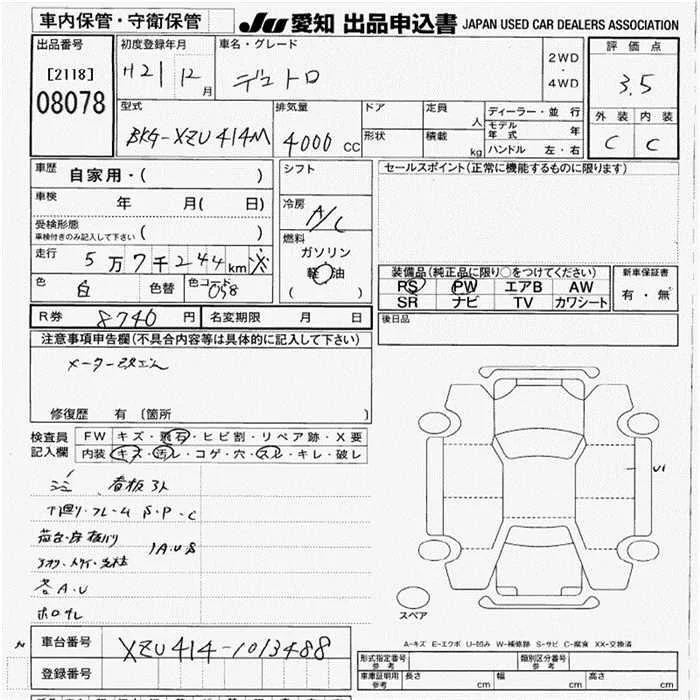 車内保管・守衛保管
JU 愛知 出品申込書 JAPAN USED CAR DEALERS ASSOCIATION
出品番号 初度登録年月 車名・グレード 2WD・4WD 評価点
[2118] H21 12月 デュトロ 3.5
08078
型式 排気量 ドア 定員 人 ディーラー・並行 外装 内装
BKG-XZU414M 4000 CC 形状 積載 kg モデル年式 年 C C
ハンドル 左・右
車歴 自家用・( ) シフト セールスポイント(正常に機能するものに限ります)
車検 年 月( 日) 冷房 A/C
受検形態
車検付きのみ記入して下さい ( ) 燃料
走行 5万7千244km ガソリン
軽油
( )
色 白 色替 色コード 058
装備品(純正品に限り○をつけてください) 新車保証書
RS PW エアB AW 有・無
SR ナビ TV カワシート
R券 8740円 名変期限 月 日 後日品
注意事項申告欄(不具合内容等は具体的に記入して下さい)
修復歴 有 〔箇所 〕
検査員 FW キズ・飛石・ヒビ割・リペア跡・X要
記入欄 内装 キズ・汚レ・コゲ・穴・スレ・キレ・破レ
看板跡
下廻り・フレーム S・P・C
荷台・床板バリ
A・U・S
各A・U
ホロサレ
U1
スペア
A-キズ E-エクボ U-凹み W-補修跡 S-サビ C-腐食 XX-交換済
車台番号 XZU414-1013488
登録番号
形式指定番号 参考 類別区分番号 参考
車庫証明用 参考 長さ cm 幅 cm 高さ cm